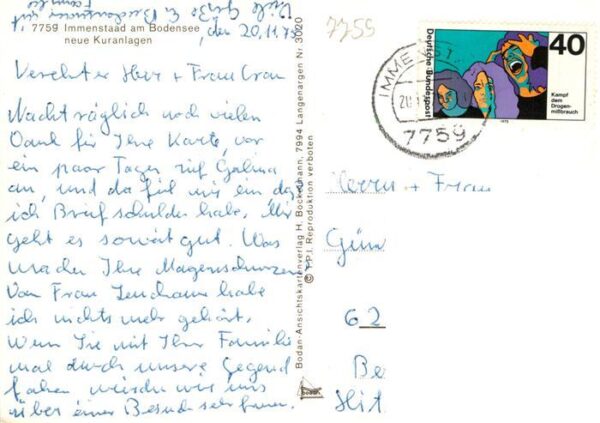 Viele Grüße
Familie
7759 Immenstaad am Bodensee
neue Kuranlagen
, den 20.11.75
Verehrter Herr + Frau
Nachträglich noch vielen
Dank für Ihre Karte, vor
ein paar Tagen rief Galina
an, und da fiel mir ein daß
ich Brief schulden habe. Mir
geht es soweit gut. Was
machen Ihre Magenschmerzen
Von Frau habe
ich nichts mehr gehört.
Wenn Sie mit Ihrer Familie
mal durch unsere Gegend
fahren würden wir uns
über einen Besuch sehr freuen.
Bodan-Ansichtskartenverlag H. Bockelmann, 7994 Langenargen Nr. 3020
© P.I. Reproduktion verboten
7759
IMMENST
7759
Deutsche Bundespost
40
Kampf
dem
Drogen-
mißbrauch
1975
Herrn + Frau
Gün
62
Be
Hit